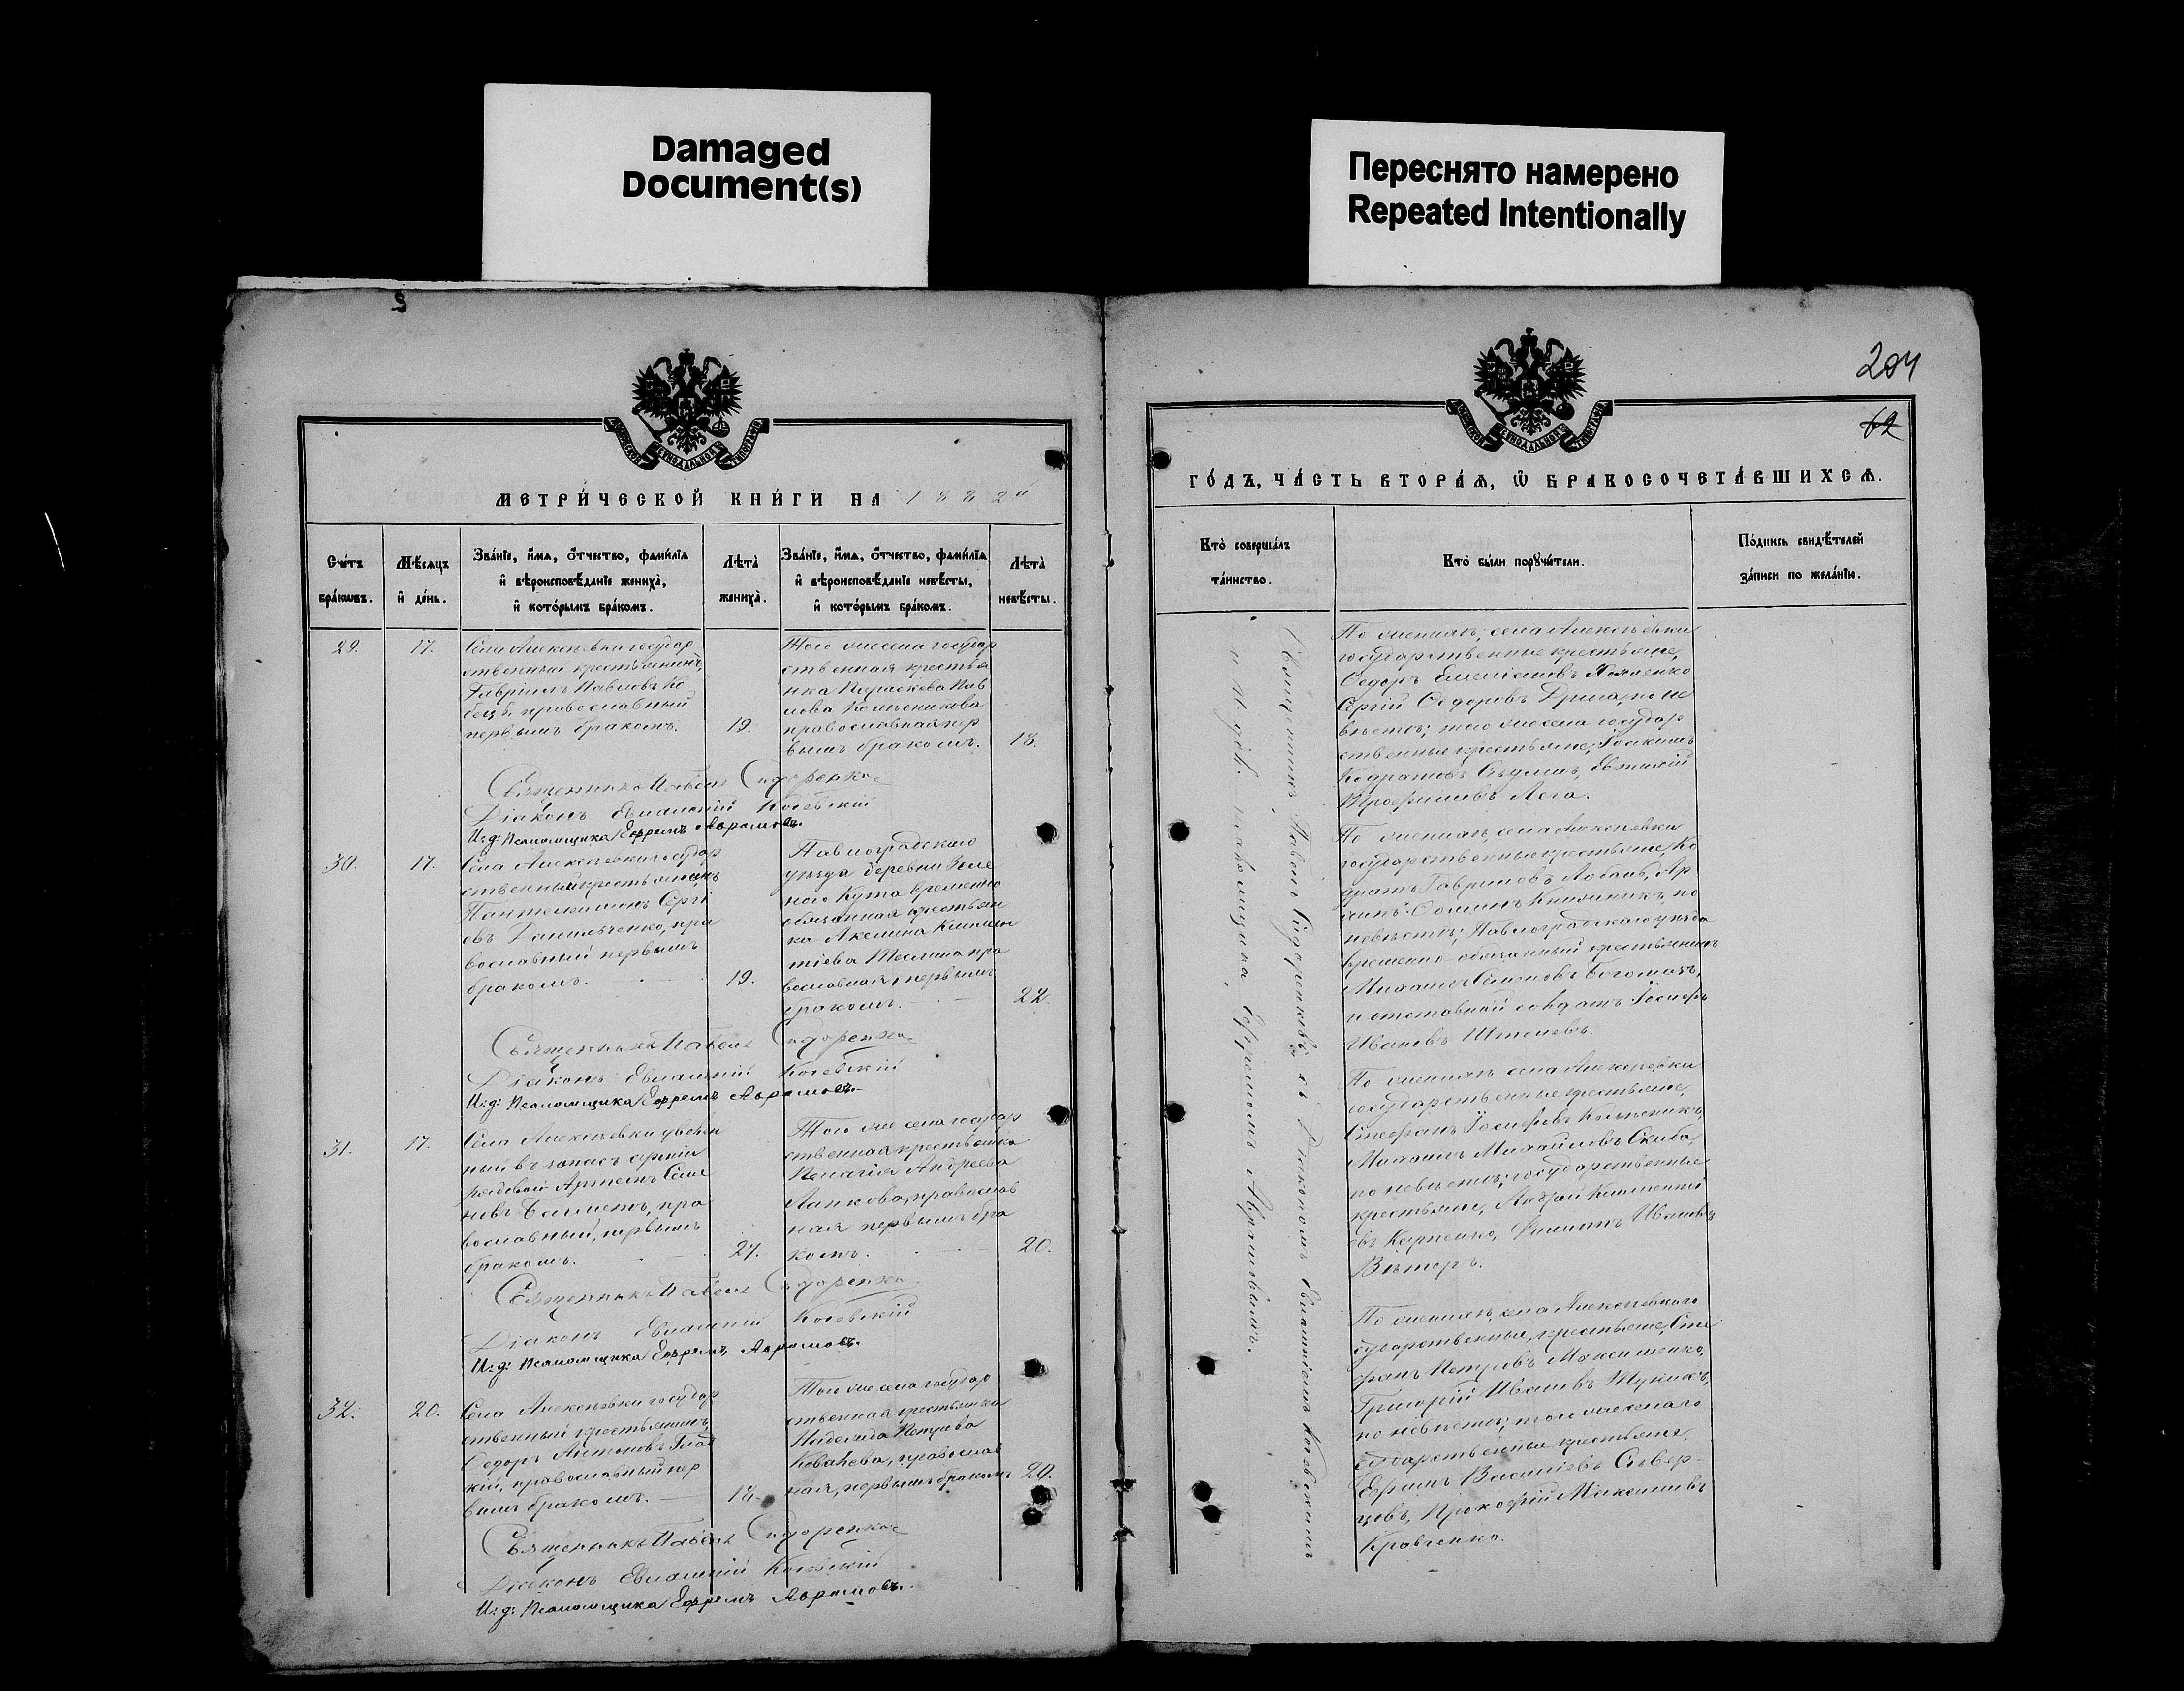 Damaged
Document(s)
Переснято намерено
Repeated Intentionally
204
62
МЕТРИ́ЧЕСКОЙ КНИ́ГИ НА 1882й
Сче́тъ бра́кѡвъ.
Мѣ́сяцъ и҆ де́нь.
Зва́нїе, и҆́мѧ, ѻ҆́тчество, фами́лїѧ
и҆ вѣроисповѣ́данїе жениха̀,
и҆ кото́рымъ бра́комъ.
Лѣта̀ жениха̀.
Зва́нїе, и҆́мѧ, ѻ҆́тчество, фами́лїѧ
и҆ вѣроисповѣ́данїе невѣ́сты,
и҆ кото́рымъ бра́комъ.
Лѣта̀ невѣ́сты.
29.
17.
Села Алексѣевки государ
ственный крестьянинъ,
Гавріилъ Павловъ Ко
бецъ, православный
первымъ бракомъ.
19.
Того же села государ
ственная крестья
нка Параскева Пав
лова
православная пер
вымъ бракомъ.
18.
Священникъ Павелъ Сидоренко
Діаконъ Евлампій Когевскій
И: д: Псаломщика Ефремъ Аврамовъ.
30.
17.
Села Алексѣевки государ
ственный крестьянинъ
Пантелеимонъ Сергі
евъ Данильченко, пра
вославный первымъ
бракомъ.
19.
Павлоградскаго
уѣзда деревни Зеле
ного Кута временно
обязанная крестьян
ка Акелина Климен
тіева пра
вославная, первымъ
бракомъ.
22.
Священникъ Павелъ Сидоренко
Діаконъ Евлампій Когевскій
И: д: Псаломщика Ефремъ Аврамовъ.
31.
17.
Села Алексѣевки уволен
ный въ запасъ арміи
рядовой Артемъ Семе
новъ пра
вославный, первымъ
бракомъ.
27.
Того же села государ
ственная крестьянка
Пелагія Андреева
Лапкова, православ
ная первымъ бра
комъ.
20.
Священникъ Павелъ Сидоренко
Діаконъ Евлампій Когевскій
И: д: Псаломщика Ефремъ Аврамовъ.
32.
20.
Села Алексѣевки государ
ственный крестьянинъ,
Ѳедоръ Антоновъ Глад
кій, православный пер
вымъ бракомъ.
18.
Того же села государ
ственная крестьянка
Надежда Петрова
Ковалева, православ
ная, первымъ бракомъ
20.
Священникъ Павелъ Сидоренко
Діаконъ Евлампій Когевскій
И: д: Псаломщика Ефремъ Аврамовъ.
ГО́ДЪ, ЧА́СТЬ ВТОРА́Ѧ, Ѡ҆ БРАКОСОЧЕТА́ВШИХСѦ.
Кто̀ соверша́лъ та́инство.
Кто̀ бы́ли порꙋчи́тели.
По́дпись свидѣ́телей
за́писи по жела́нїю.
Священникъ Павелъ Сидоренковъ съ Діакономъ Евлампіемъ Когевскимъ
и и. дол. псаломщика, Ефремомъ Аврамовымъ.
По женихѣ, села Алексѣевки
государственные крестьяне,
Ѳедоръ Хоменко
Сергій Ѳедоровъ по не
вѣстѣ; того же села государ
ственные крестьяне, Іоакимъ
Кодратовъ Евтихій
Трофимовъ Лега.
По женихѣ, села Алексѣевки
государственные крестьяне, Ко
дратъ Гавриловъ Лобань,
Ѳоминъ по
невѣстѣ; Павлоградскаго уѣзда
временно обязанный крестьянинъ
Михаилъ Семеновъ Богомазъ,
и отставной солдатъ Іосифъ
Ивановъ Штепевъ.
По женихѣ села Алексѣевки
государственные крестьяне,
Стефанъ Іосифовъ
Михаилъ Михайловъ Скиба,
по невѣстѣ; государственные
крестьяне, Андрей Клименті
евъ Филиппъ Ивановъ
Вѣтеръ.
По женихѣ, села Алексѣевки го
сударственные, крестьяне, Сте
фанъ Петровъ Максименко,
Григорій Ивановъ
по невѣстѣ; того же села го
сударственные крестьяне,
Ефимъ Василіевъ Сивер-
цовъ, Прокофій Максимовъ
Кравченко.